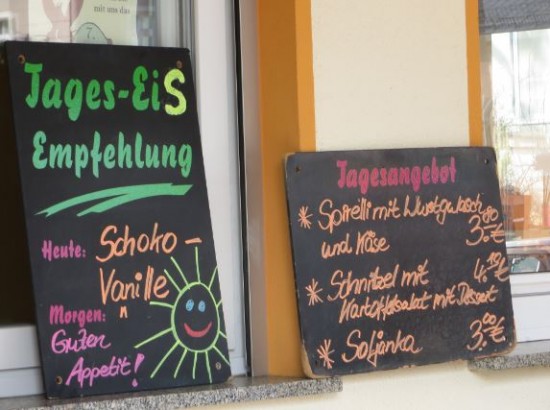 mit aus das
7.
Tages-EiS
Empfehlung
Heute: Schoko-
Vanille
Morgen:
Guten
Appetit!
Tagesangebot
* Spirelli mit Wurstgulasch
und Käse 3.80€
* Schnitzel mit 4.10€
Kartoffelsalat mit Dessert
* Soljanka 3.00€